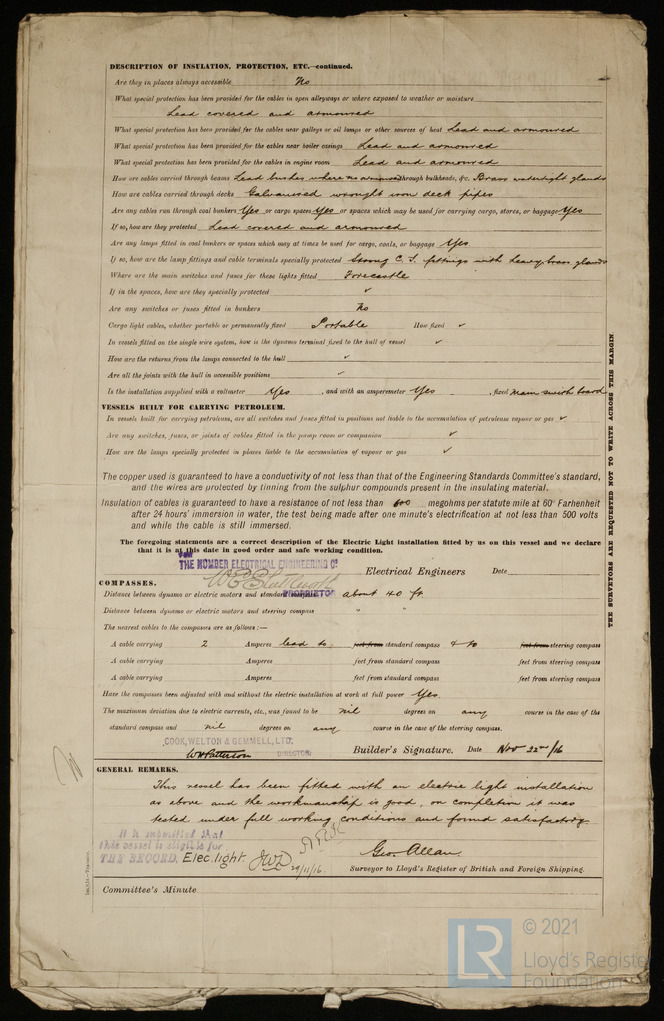 DESCRIPTION OF INSULATION, PROTECTION, ETC.—continued.
Are they in places always accessible No
What special protection has been provided for the cables in open alleyways or where exposed to weather or moisture
Lead covered and armoured
What special protection has been provided for the cables near galleys or oil lamps or other sources of heat Lead and armoured
What special protection has been provided for the cables near boiler casings Lead and armoured
What special protection has been provided for the cables in engine room Lead and armoured
How are cables carried through beams Lead bushes where no armour through bulkheads, &c. Brass watertight glands
How are cables carried through decks Galvanised wrought iron deck pipes
Are any cables run through coal bunkers Yes or cargo spaces Yes or spaces which may be used for carrying cargo, stores, or baggage Yes
If so, how are they protected Lead covered and armoured
Are any lamps fitted in coal bunkers or spaces which may at times be used for cargo, coals, or baggage Yes
If so, how are the lamp fittings and cable terminals specially protected Strong C.I. fittings with heavy brass glands
Where are the main switch and fuses for these lights fitted Forecastle
If in the spaces, how are they specially protected ✓
Are any switches or fuses fitted in bunkers No
Cargo light cables, whether portable or permanently fixed Portable How fixed ✓
In vessels fitted on the single wire system, how is the dynamo terminal fixed to the hull of vessel ✓
How are the returns from the lamps connected to the hull ✓
Are all the joints with the hull in accessible positions ✓
Is the installation supplied with a voltmeter Yes , and with an amperemeter Yes , fixed main swich board
VESSELS BUILT FOR CARRYING PETROLEUM.
In vessels built for carrying petroleum, are all switches and fuses fitted in positions not liable to the accumulation of petroleum vapour or gas ✓
Are any switches, fuses, or joints of cables fitted in the pump room or companion ✓
How are the lamps specially protected in places liable to the accumulation of vapour or gas ✓
The copper used is guaranteed to have a conductivity of not less than that of the Engineering Standards Committee's standard,
and the wires are protected by tinning from the sulphur compounds present in the insulating material.
Insulation of cables is guaranteed to have a resistance of not less than 600 megohms per statute mile at 60° Farhenheit
after 24 hours' immersion in water, the test being made after one minute's electrification at not less than 500 volts
and while the cable is still immersed.
The foregoing statements are a correct description of the Electric Light installation fitted by us on this vessel and we declare
that it is at this date in good order and safe working condition.
THE HUMBER ELECTRICAL ENGINEERING Co
Electrical Engineers Date
PROPRIETOR
COMPASSES.
Distance between dynamo or electric motors and standard compass about 40 ft
Distance between dynamo or electric motors and steering compass " "
The nearest cables to the compasses are as follows:—
A cable carrying 2 Amperes lead to feet from standard compass & to feet from steering compass
A cable carrying Amperes feet from standard compass feet from steering compass
A cable carrying Amperes feet from standard compass feet from steering compass
Have the compasses been adjusted with and without the electric installation at work at full power Yes
The maximum deviation due to electric currents, etc., was found to be nil degrees on any course in the case of the
standard compass and nil degrees on any course in the case of the steering compass.
COOK, WELTON & GEMMELL, LTD.
W H Patterson DIRECTOR. Builder's Signature. Date Nov 22nd/16
GENERAL REMARKS.
This vessel has been fitted with an electric light installation
as above and the workmanship is good, on completion it was
tested under full working conditions and found satisfactory
It is submitted that
this vessel is eligible for
THE RECORD. Elec. light. JWD 29/11/16.
Geo. Allan
Surveyor to Lloyd's Register of British and Foreign Shipping.
Committee's Minute
THE SURVEYORS ARE REQUESTED NOT TO WRITE ACROSS THIS MARGIN
© 2021
LR
Lloyd's Register
Foundation